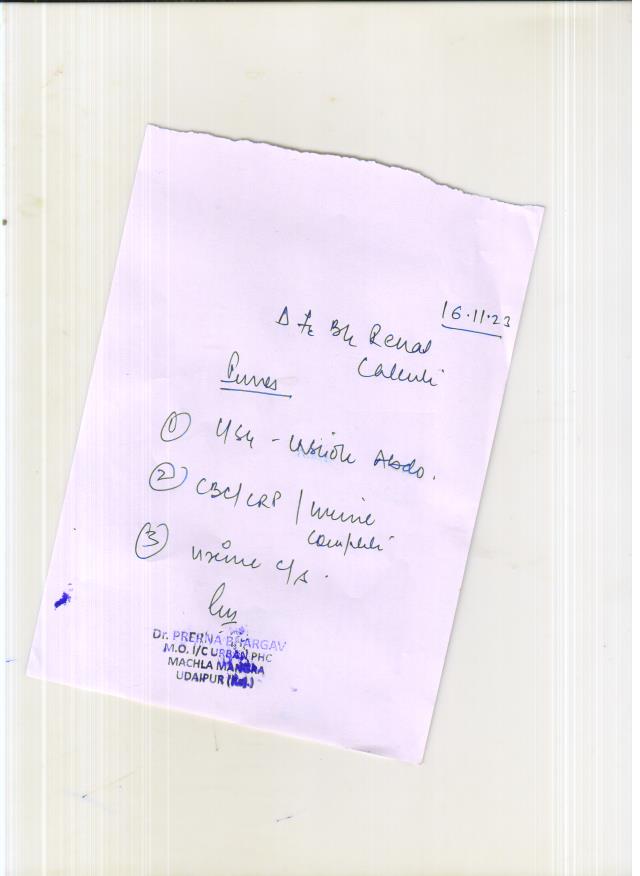 16.11.23
Δ B/L Renal
Calculi
① USG - whole Abdo.
② CBC/CRP / urine
complete
③ urine C/S.
Dr. PRERNA BHARGAV
M.O. I/C URBAN PHC
MACHLA MANGRA
UDAIPUR (Raj.)